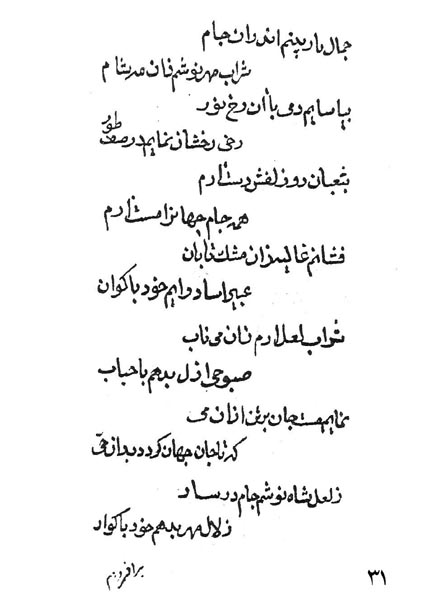 جمال یار بینم اندران جام
شراب مهر نوشم زان مه شام
بیاسایم دمی با آن رخ نور
رخی رخشان نمایم در صف طور
بثعبان دو زلفش دست آرم
همه جام جهانرا مست آرم
فشانم غالیه زان مشک تابان
عبیر آسا دوایم خود باکوان
شراب لعل آرم زان می ناب
صبوحی از ل بدهم باحباب
نمایم مست جان بزن ازان می
که تا جان جهان گردد بدان حی
ز لعل شاه نوشم جام در سار
زلال مهر بدهم خود باکوار
برافروزم
۳۱